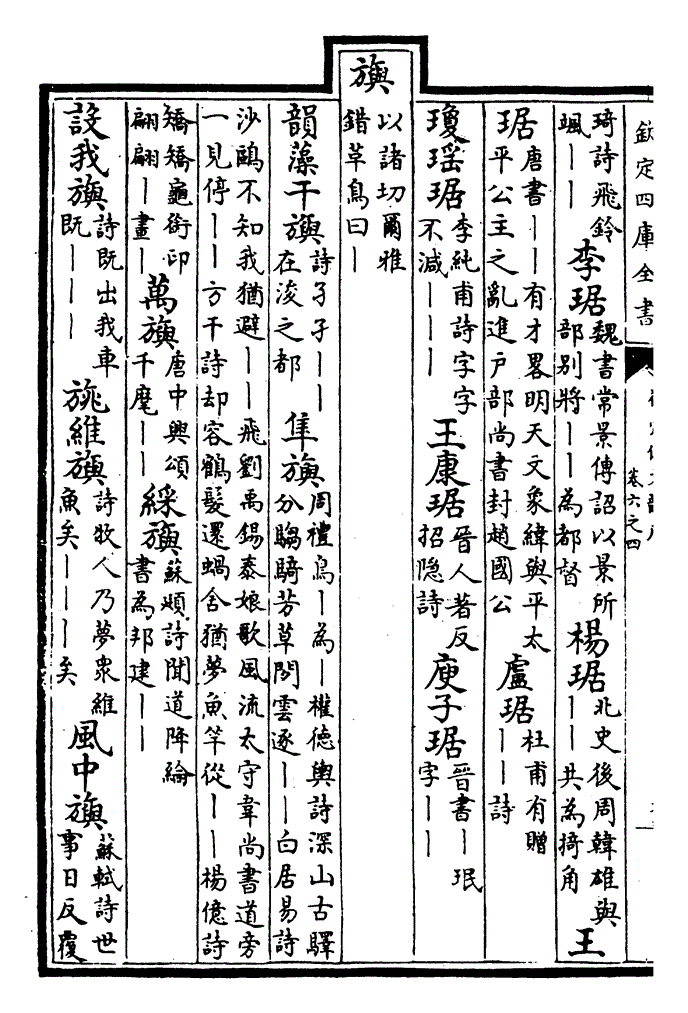 欽定四庫全書
卷六之四
琦詩飛鈴颯丨丨 李琚 魏書常景傳詔以景所部别將丨丨為都督 楊琚 北史後周韓雄與丨丨共為掎角 王
琚 唐書丨丨有才畧明天文象緯與平太平公主之亂進户部尚書封趙國公 盧琚 杜甫有贈丨丨詩
瓊瑶琚 李純甫詩字字不減丨丨丨 王康琚 晉人著反招隐詩 庾子琚 晉書丨珉字丨丨
旟 以諸切爾雅錯草鳥曰丨
韻藻干旟 詩孑孑丨丨在浚之都 隼旟 周禮鳥丨為丨權德輿詩深山古驛分騶騎芳草閒雲逐丨丨白居易詩
沙鷗不知我猶避丨丨飛劉禹錫泰娘歌風流太守韋尚書道旁一見停丨丨方干詩却容鶴髮還蝸舍猶夢魚竿從丨丨楊億詩
矯矯龜銜印翩翩丨畫丨 萬旟 唐中興頌千麾丨丨 綵旟 蘇頲詩聞道降綸書為邦建丨丨
設我旟 詩既出我車既丨丨丨 旐維旟 詩牧人乃夢衆維魚矣丨丨丨矣 風中旟 蘇軾詩世事日反覆